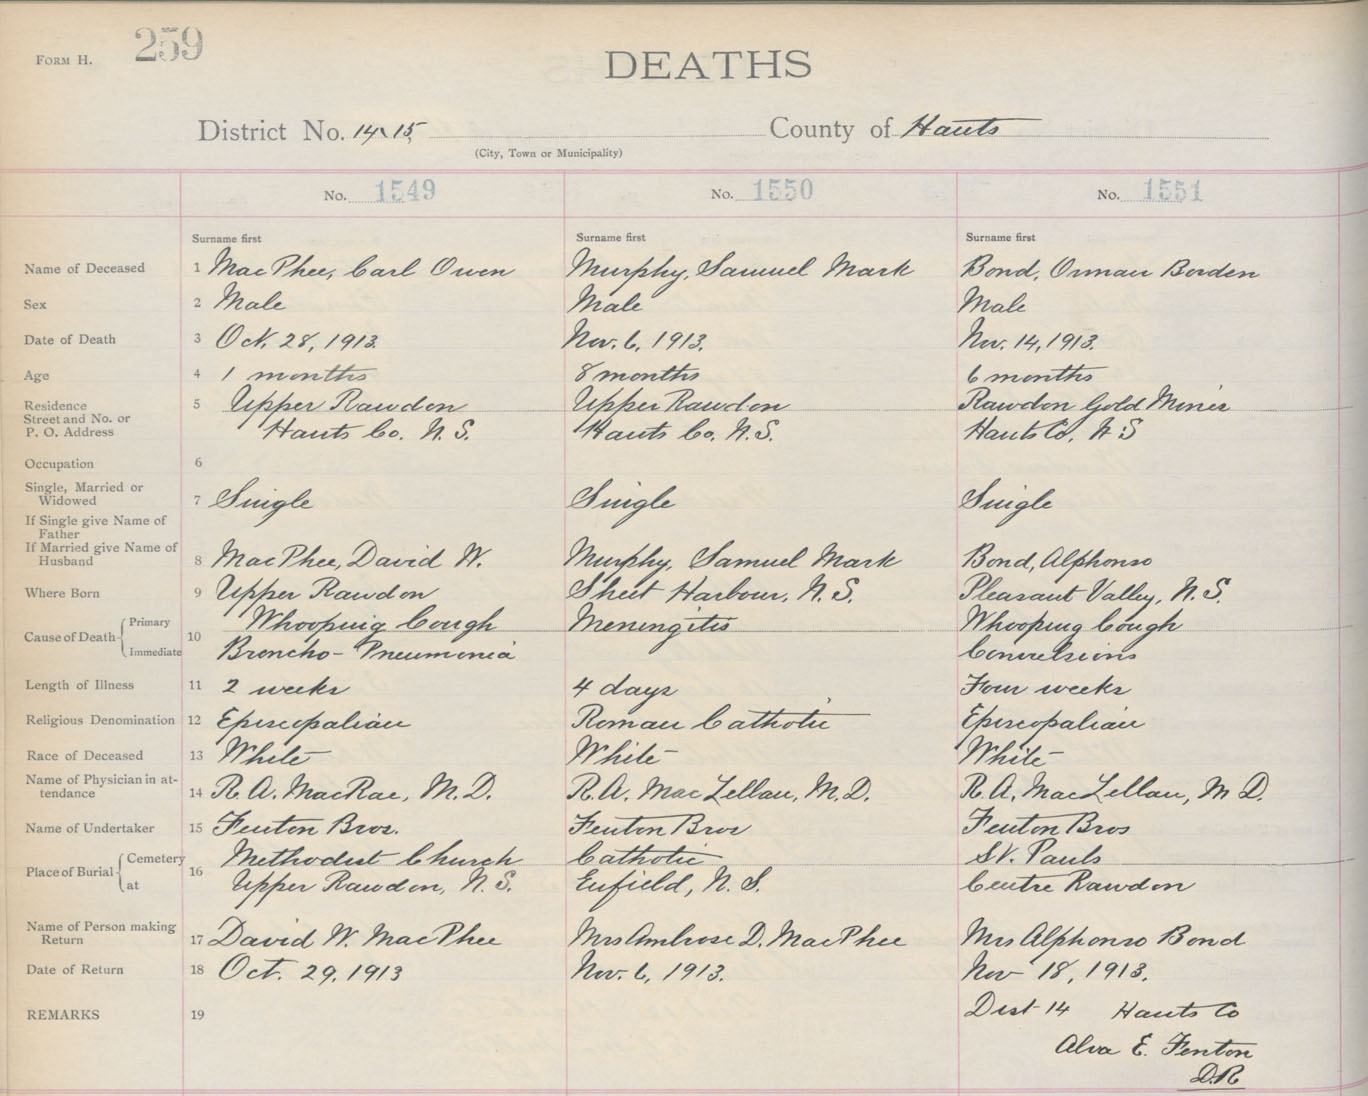 FORM H.
259
DEATHS
District No. 14 & 15, County of Hants
(City, Town or Municipality)
No. 1549 No. 1550 No. 1551
Surname first Surname first Surname first
Name of Deceased 1 MacPhee, Carl Owen Murphy, Samuel Mark Bond, Orman Borden
Sex 2 Male Male Male
Date of Death 3 Oct. 28, 1913. Nov. 6, 1913. Nov. 14, 1913.
Age 4 1 months 8 months 6 months
Residence 5 Upper Rawdon Upper Rawdon Rawdon Gold Mines
Street and No. or
P. O. Address Hants Co. N.S. Hants Co. N.S. Hants Co, N.S
Occupation 6
Single, Married or
Widowed 7 Single Single Single
If Single give Name of
Father
If Married give Name of
Husband 8 MacPhee, David W. Murphy, Samuel Mark Bond, Alphonso
Where Born 9 Upper Rawdon Sheet Harbour, N.S. Pleasant Valley, N.S.
Cause of Death Primary 10 Whooping Cough Meningitis Whooping Cough
Immediate Broncho-Pneumonia Convulsions
Length of Illness 11 2 weeks 4 days Four weeks
Religious Denomination 12 Episcopalian Roman Catholic Episcopalian
Race of Deceased 13 White White White
Name of Physician in at-
tendance 14 R.A. MacRae, M.D. R.A. MacLellan, M.D. R.A. MacLellan, M D.
Name of Undertaker 15 Fenton Bros. Fenton Bros Fenton Bros
Place of Burial Cemetery 16 Methodist Church Catholic St. Pauls
at Upper Rawdon, N.S. Enfield, N.S. Centre Rawdon
Name of Person making
Return 17 David W. MacPhee Mrs Ambrose D. MacPhee Mrs Alphonso Bond
Date of Return 18 Oct. 29, 1913 Nov. 6, 1913. Nov 18, 1913.
REMARKS 19 Dist 14 Hants Co
Alva E. Fenton
D.R